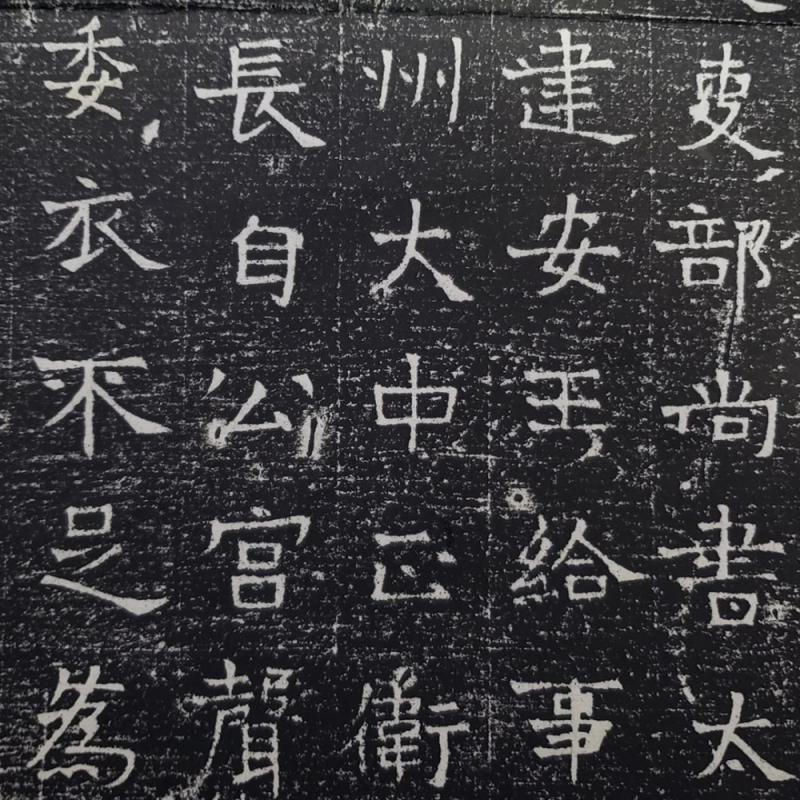 吏部尚書太
建安王給事
州大中正衛
長自公宮聲
委衣不足為